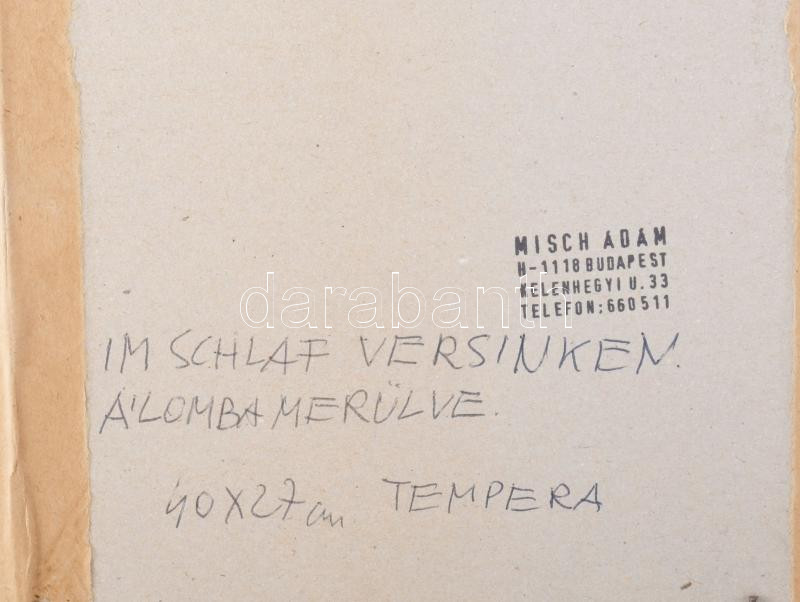 MISCH ÁDÁM
H-1118 BUDAPEST
KELENHEGYI U. 33
TELEFON: 660 511
darabanth
IM SCHLAF VERSINKEN.
ÁLOMBA MERÜLVE.
40X27 cm TEMPERA